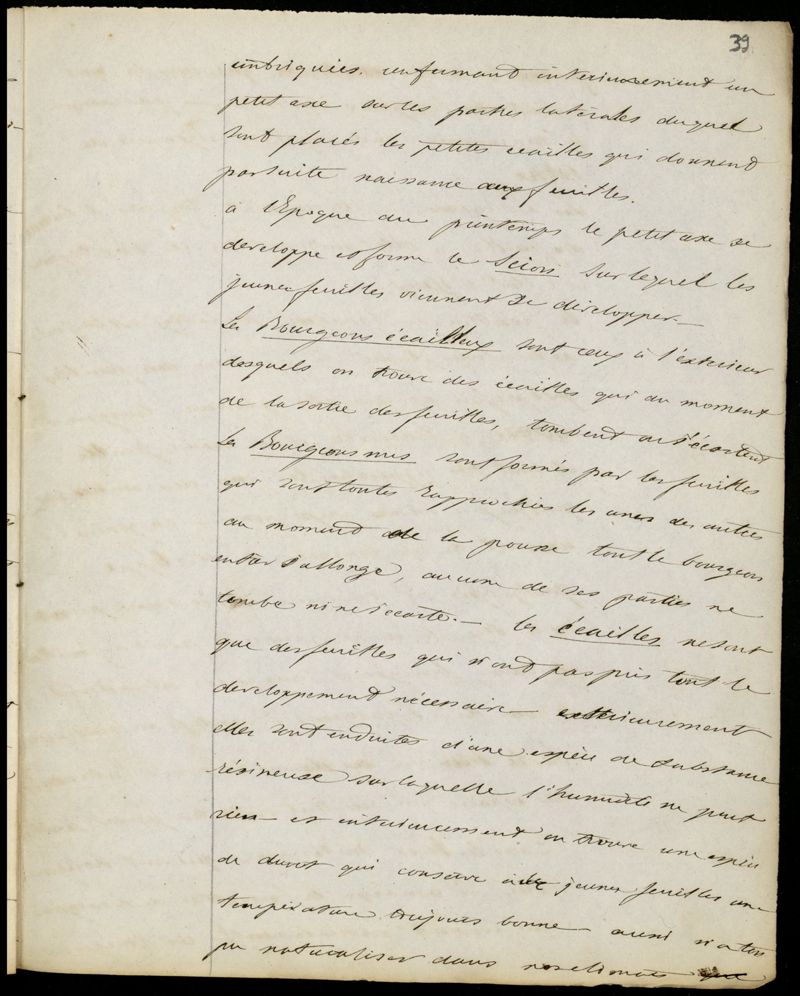 39
imbriquées. renfermant interieurement un
petit axe sur les parties latérales duquel
sont placés les petites écailles qui donnent
par suite naissance aux feuilles.
à l'Epoque du printemps le petit axe se
developpe et forme le Scion sur lequel les
jeunes feuilles viennent se développer. –
Les Bourgeons écailleux sont ceux à l'exterieur
desquels on trouve des écailles qui au moment
de la sortie des feuilles, tombent ou s'écartent
Les Bourgeons nus sont formés par les feuilles
qui sont toutes rapprochées les unes des autres
au moment de la pousse tout le bourgeon
entier s'allonge, aucune de ses parties ne
tombe ni ne s'écarte. – les écailles ne sont
que des feuilles qui n'ont pas pris tout le
developpement nécessaire – exterieurement
elles sont enduites d'une espèce de substance
résineuse sur laquelle l'humidité ne peut
rien – et interieurement on trouve une espèce
de duvet qui conserve aux jeunes feuilles une
température toujours bonne – aussi n'a ton
pu naturaliser dans nos climats que